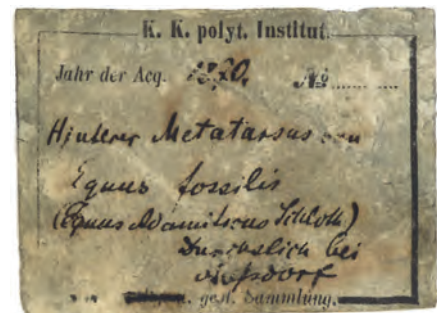 K. K. polyt. Institut.
Jahr der Acq. 1870. No
Hinterer Metatarsus von
Equus fossilis
(Equus Adamiticus Schloth)
bei
u. geol. Sammlung.